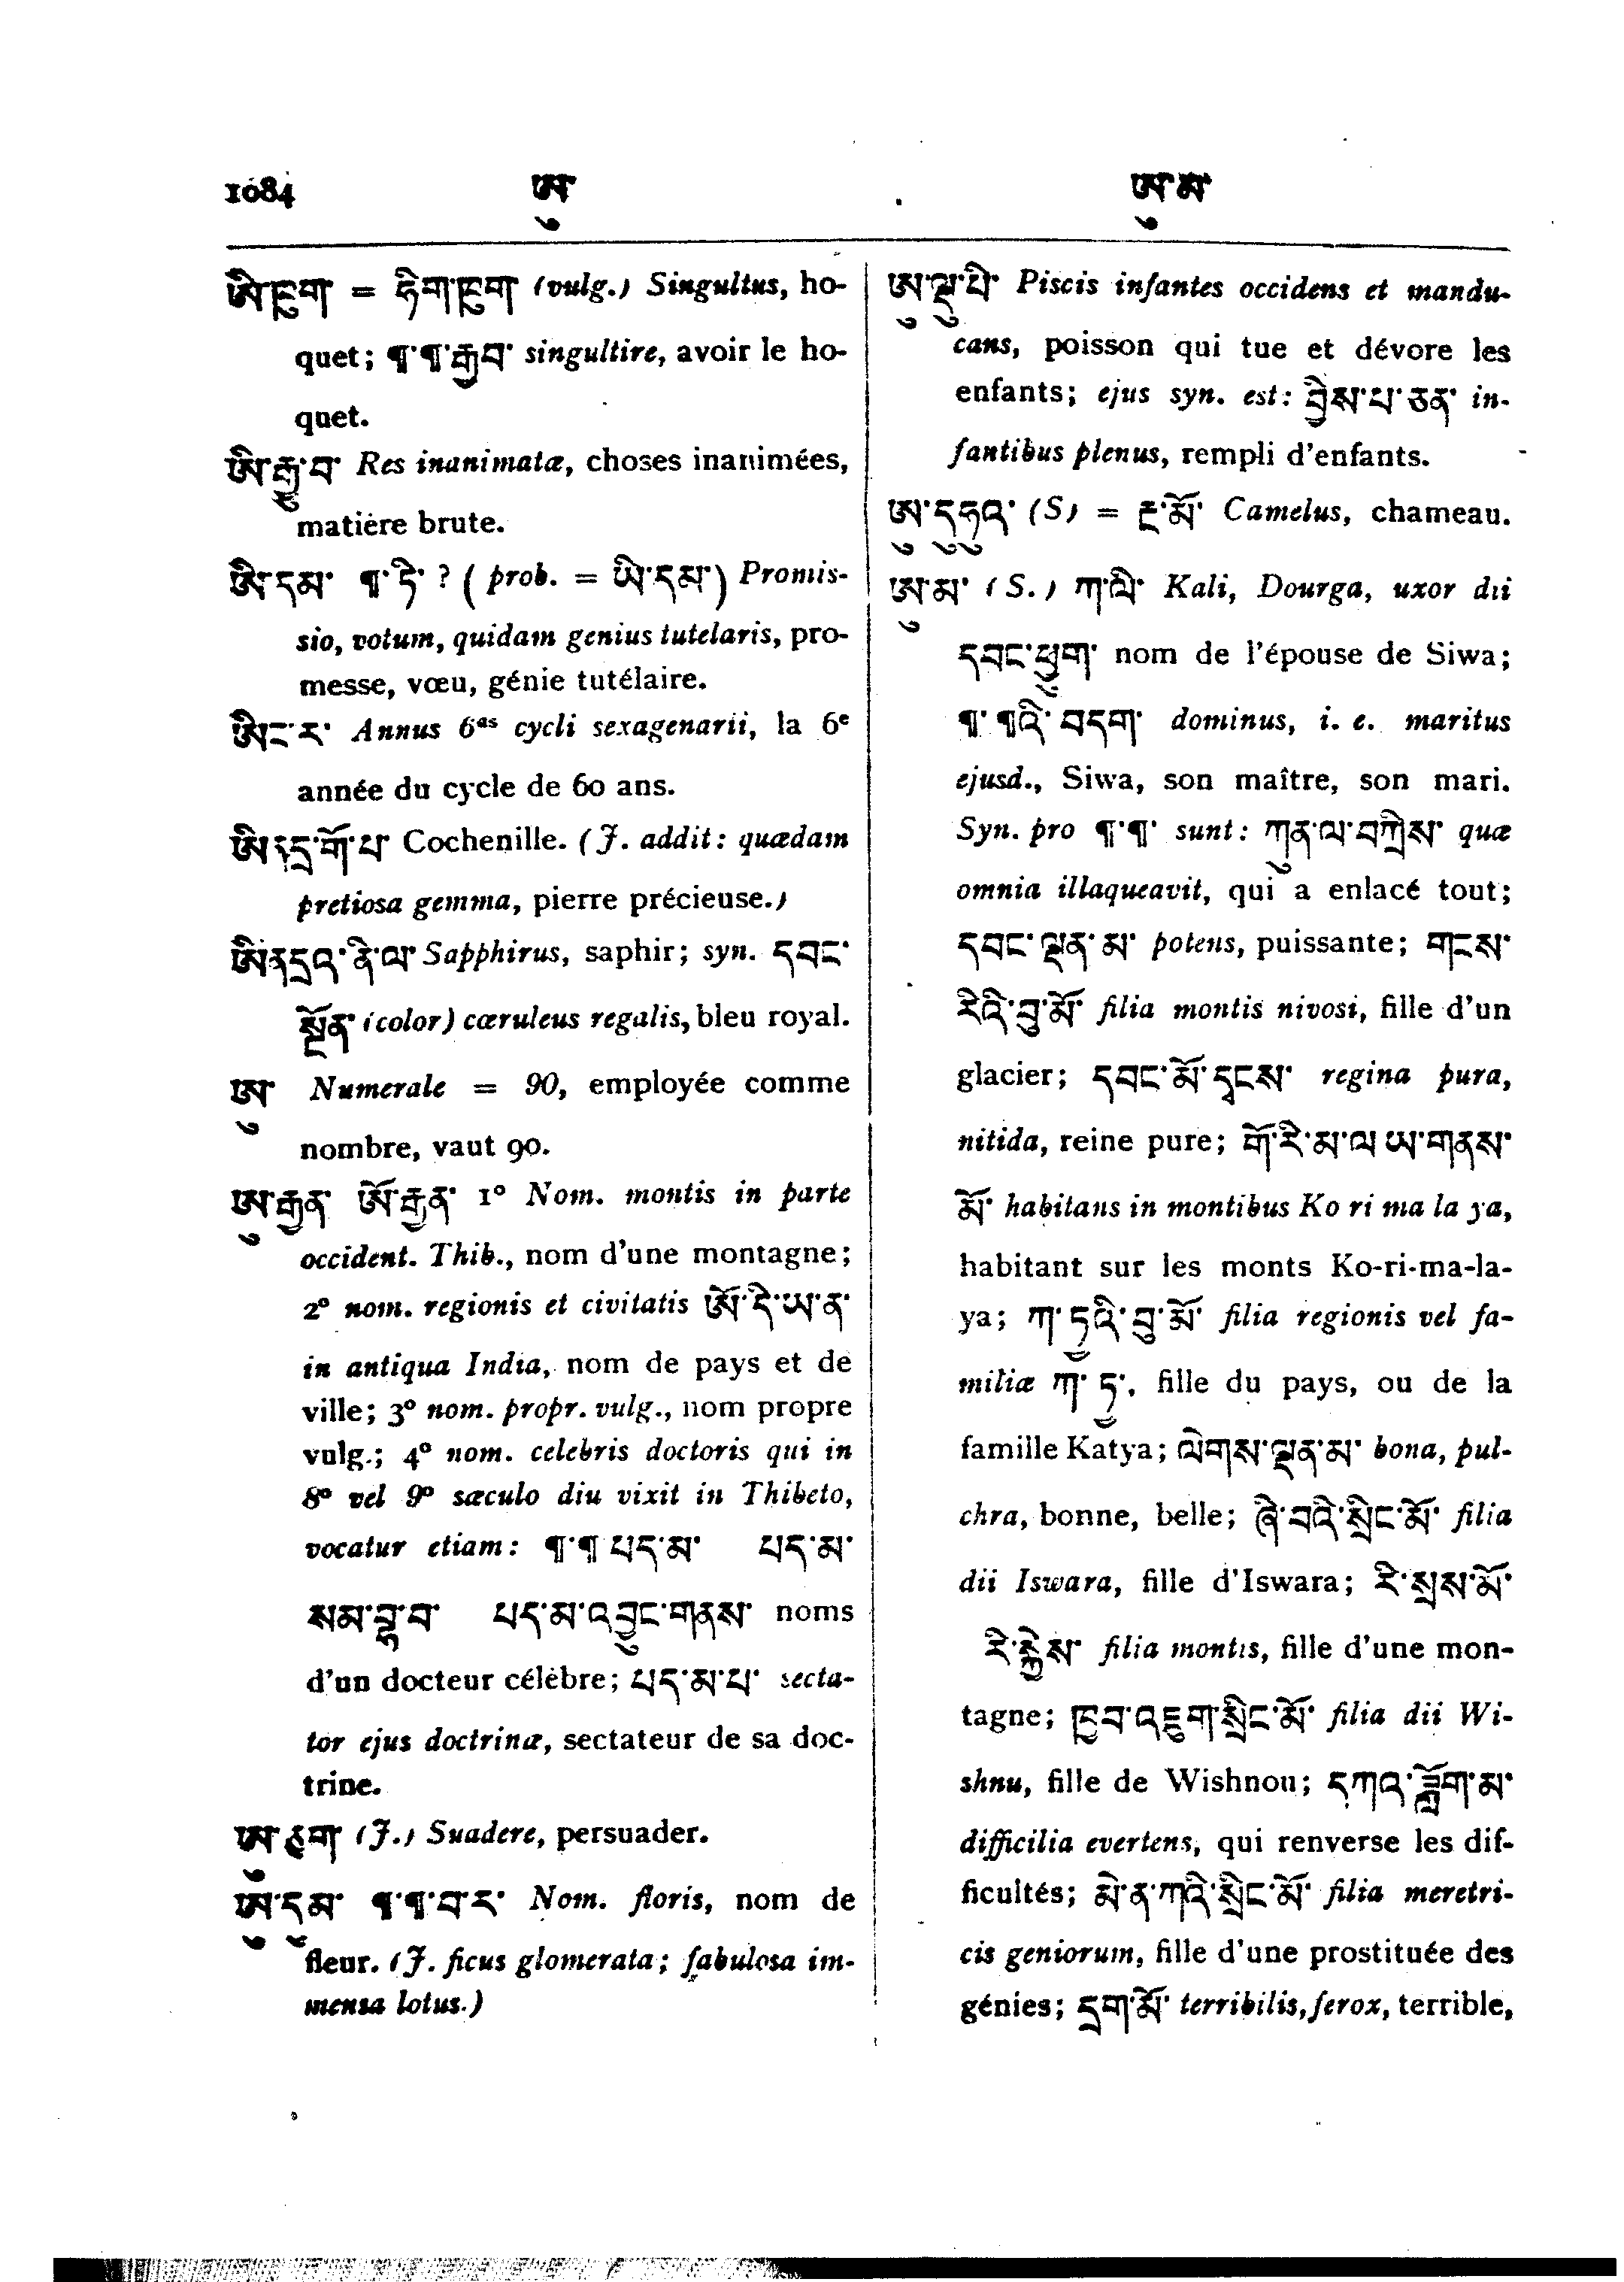 1084 ཨུ་ ཨུ་མ་
ཨི་ཁུག་ = ཧིག་ཁུག་ (vulg.) Singultus, ho-
quet; ¶་¶་རྒྱབ་ singultire, avoir le ho-
quet.
ཨི་རྒྱུ་བ་ Res inanimatæ, choses inanimées,
matière brute.
ཨི་དམ་ ¶་ཏི་ ? ( prob. = ཡི་དམ་) Promis-
sio, votum, quidam genius tutelaris, pro-
messe, vœu, génie tutélaire.
ཨིང་ར་ Annus 6as cycli sexagenarii, la 6e
année du cycle de 60 ans.
Cochenille. (J. addit: quædam
pretiosa gemma, pierre précieuse.)
Sapphirus, saphir; syn. དབང་
སྔོན་ (color) cæruleus regalis, bleu royal.
ཨུ་ Numerale = 90, employée comme
nombre, vaut 90.
ཨུ་རྒྱན་ ཨོ་རྒྱན་ 1° Nom. montis in parte
occident. Thib., nom d'une montagne;
2° nom. regionis et civitatis ཨོ་དི་ཡ་ན་
in antiqua India, nom de pays et de
ville; 3° nom. propr. vulg., nom propre
vulg.; 4° nom. celebris doctoris qui in
8° vel 9° sæculo diu vixit in Thibeto,
vocatur etiam: ¶་¶ པད་མ་ པད་མ་
སམ་བྷ་བ་ པད་མ་འབྱུང་གནས་ noms
d'un docteur célèbre; པད་མ་པ་ secta-
tor ejus doctrinæ, sectateur de sa doc-
trine.
ཨུ་ཙུག་ (J.) Suadere, persuader.
ཨུ་དུམ་ ¶་¶་བ་ར་ Nom. floris, nom de
fleur. (J. ficus glomerata; fabulosa im-
mensa lotus.)
ཨུ་ལྡུ་པི་ Piscis infantes occidens et mandu-
cans, poisson qui tue et dévore les
enfants; ejus syn. est: བྱིས་པ་ཅན་ in-
fantibus plenus, rempli d'enfants.
ཨུ་དུཧུའ་ (S) = རྔ་མོ་ Camelus, chameau.
ཨུ་མ་ (S.) ཀ་ལི་ Kali, Dourga, uxor dii
དབང་ཕྱུག་ nom de l'épouse de Siwa;
¶་ ¶འི་ བདག་ dominus, i. e. maritus
ejusd., Siwa, son maître, son mari.
Syn. pro ¶་¶་ sunt: ཀུན་ལ་བཀྲིས་ quæ
omnia illaqueavit, qui a enlacé tout;
དབང་ལྡན་མ་ potens, puissante; གངས་
རིའི་བུ་མོ་ filia montis nivosi, fille d'un
glacier; དབང་མོ་དྭངས་ regina pura,
nitida, reine pure; གོ་རི་མ་ལ་ཡ་གནས་
མོ་ habitans in montibus Ko ri ma la ya,
habitant sur les monts Ko-ri-ma-la-
ya; ཀ་ཏྱའི་བུ་མོ་ filia regionis vel fa-
miliæ ཀ་ཏྱ་, fille du pays, ou de la
famille Katya; ལེགས་ལྡན་མ་ bona, pul-
chra, bonne, belle; ཞི་བའི་སྲིང་མོ་ filia
dii Iswara, fille d'Iswara; རི་སྲས་མོ་
རི་སྐྱེས་ filia montis, fille d'une mon-
tagne; ཁྱབ་འཇུག་སྲིང་མོ་ filia dii Wi-
shnu, fille de Wishnou; དཀའ་ཟློག་མ་
difficilia evertens, qui renverse les dif-
ficultés; མེ་ན་ཀའི་སྲིང་མོ་ filia meretri-
cis geniorum, fille d'une prostituée des
génies; དྲག་མོ་ terribilis, ferox, terrible,